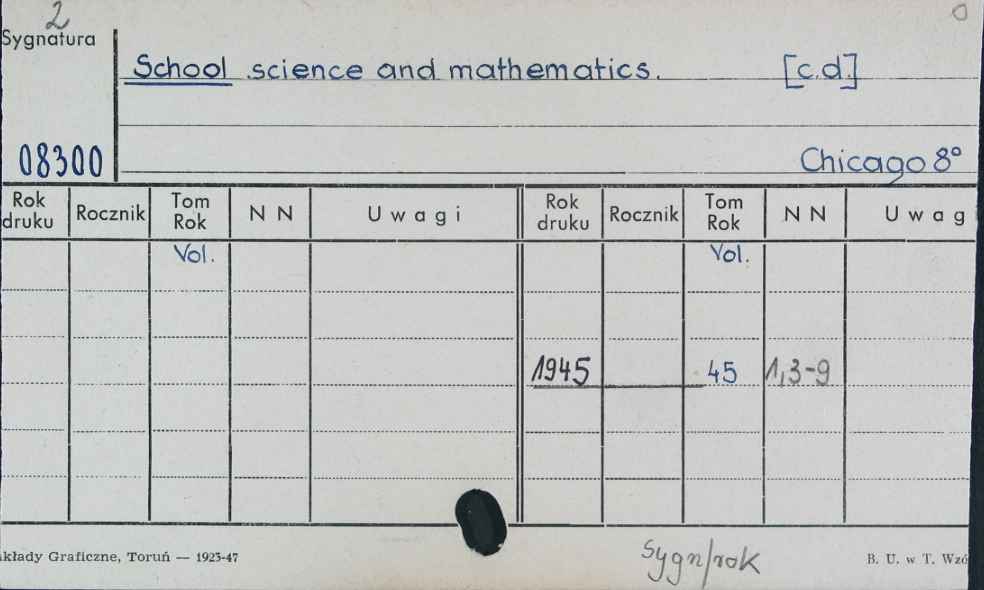 2
Sygnatura
School science and mathematics. [c.d.]
08300
Chicago 8°
Rok druku Rocznik Tom Rok N N Uwagi Rok druku Rocznik Tom Rok N N Uwag
Vol. Vol.
1945 45 1,3-9
kłady Graficzne, Toruń — 1923-47
Sygn/rok
B. U. w T. Wzó